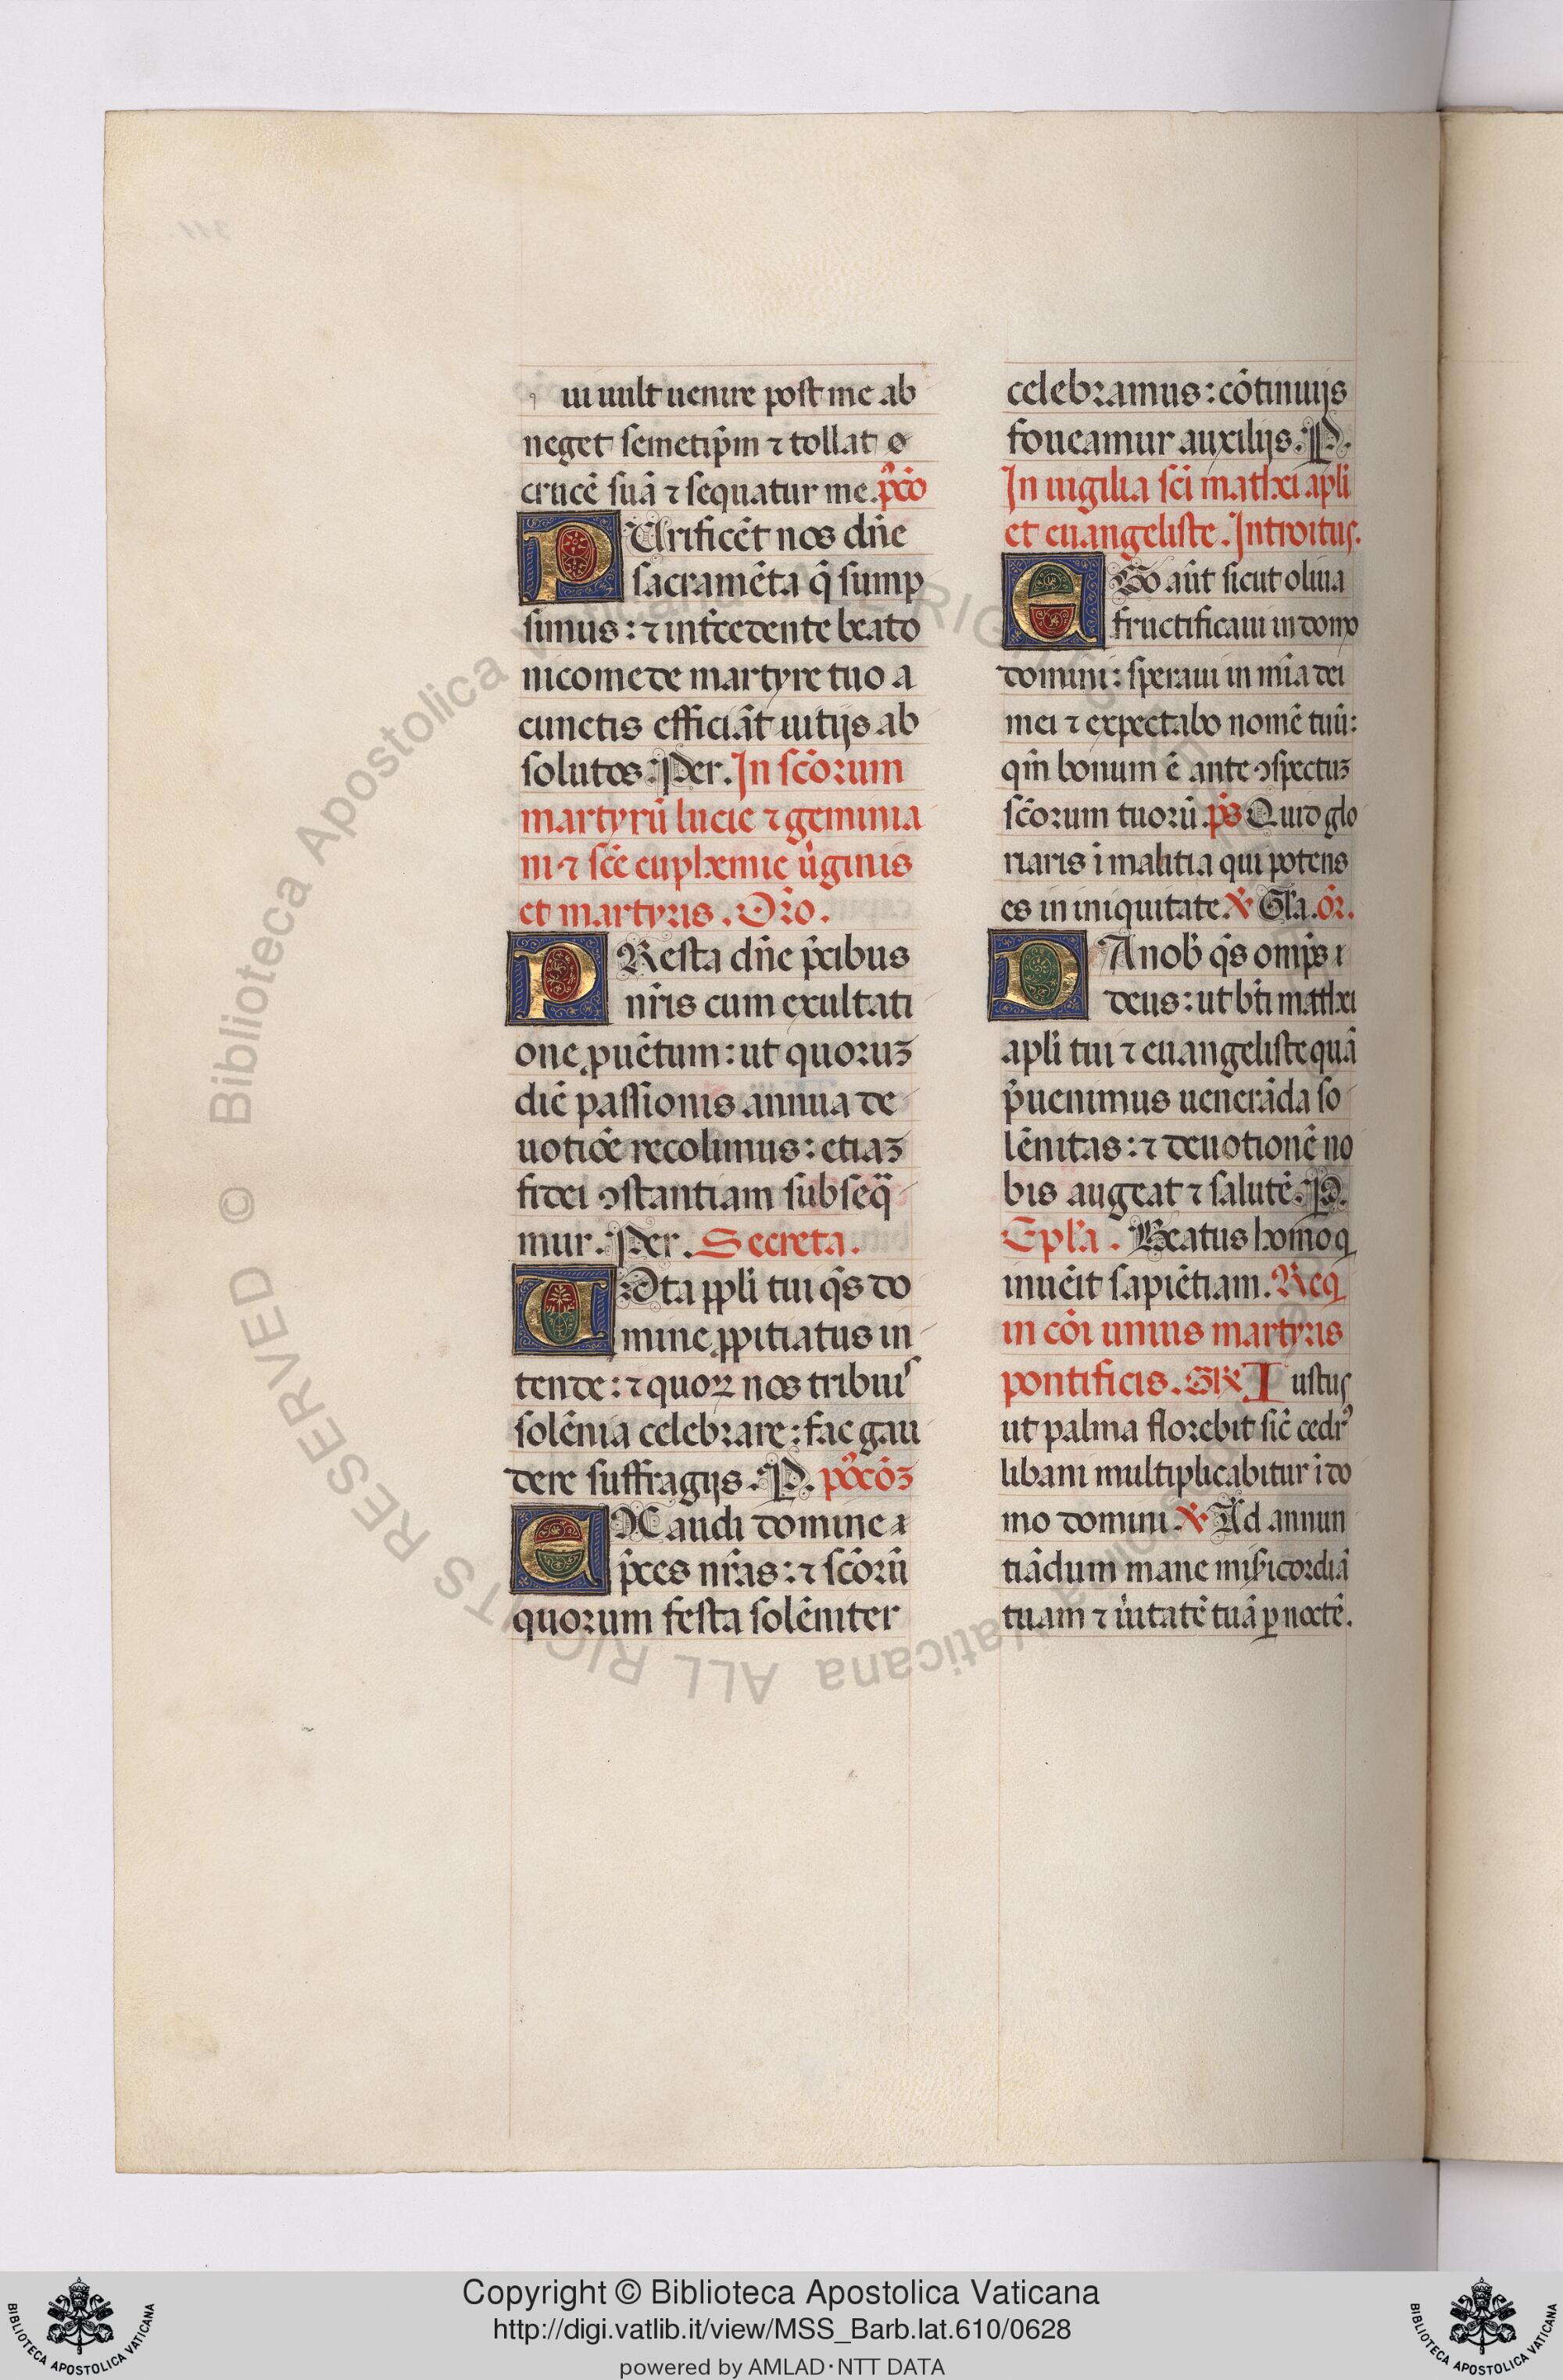 ui uult uenire post me ab
neget semetip̄m ⁊ tollat
crucē suā ⁊ sequatur me. p̄co
PUrificēt nos dn̄e
sacramēta q̄ sump
simus: ⁊ int̄cedente beato
nicomede martyre tuo a
cunctis efficiāt uitijs ab
solutos. Per. In sc̄orum
martyrū lucie ⁊ geminia
ni ⁊ sc̄e euphemie ūginis
et martyris. Or̄o.
PResta dn̄e p̄cibus
nr̄is cum exultati
one ꝓuētum: ut quoruꝫ
diē passionis annua de
uotiōe recolimus: etiaꝫ
fidei ꝯstantiam subseq̄
mur. Per. Secreta.
UOta ppl̄i tui q̄s do
mine ꝓpitiatus in
tende: ⁊ quoꝝ nos tribuis
solēnia celebrare: fac gau
dere suffragijs. P. p̄ocōꝫ
EXaudi domine
p̄ces nr̄as: ⁊ sc̄orū
quorum festa solēniter
celebramus: cōtinuijs
foueamur auxilijs. P.
In uigilia sc̄i mathei apl̄i
et euangeliste. Introitus.
EGo aūt sicut oliua
fructificaui in domo
domini: speraui in mīa dei
mei ⁊ expectabo nomē tuū:
qm̄ bonum ē ante ꝯspectuꝫ
sc̄orum tuorū. p̄s Quid glo
riaris ī malitia qui potens
es in iniquitate. ℣ Gl̄a. or̄.
DA nob̄ q̄s omp̄s
deus: ut bt̄i mathei
apl̄i tui ⁊ euangeliste quā
p̄uenimus uenerāda so
lēnitas: ⁊ deuotionē no
bis augeat ⁊ salutē. P.
Epl̄a. Beatus homo q
inuēit sapiētiam. Req
in cōi unius martyris
pontificis. GR̄ Iustus
ut palma florebit sic̄ cedrꝰ
libani multiplicabitur ī do
mo domini. ℣ Ad annun
tiādum mane mis̄icordiā
tuam ⁊ ūitatē tuā ꝑ noctē.
© Biblioteca Apostolica Vaticana ALL RIGHTS RESERVED
Copyright © Biblioteca Apostolica Vaticana
http://digi.vatlib.it/view/MSS_Barb.lat.610/0628
powered by AMLAD·NTT DATA
BIBLIOTECA APOSTOLICA VATICANA
BIBLIOTECA APOSTOLICA VATICANA